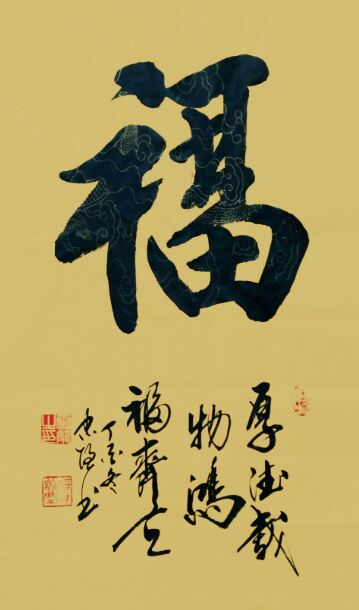 福
厚德载
物鸿
福齊天
丁亥冬
书